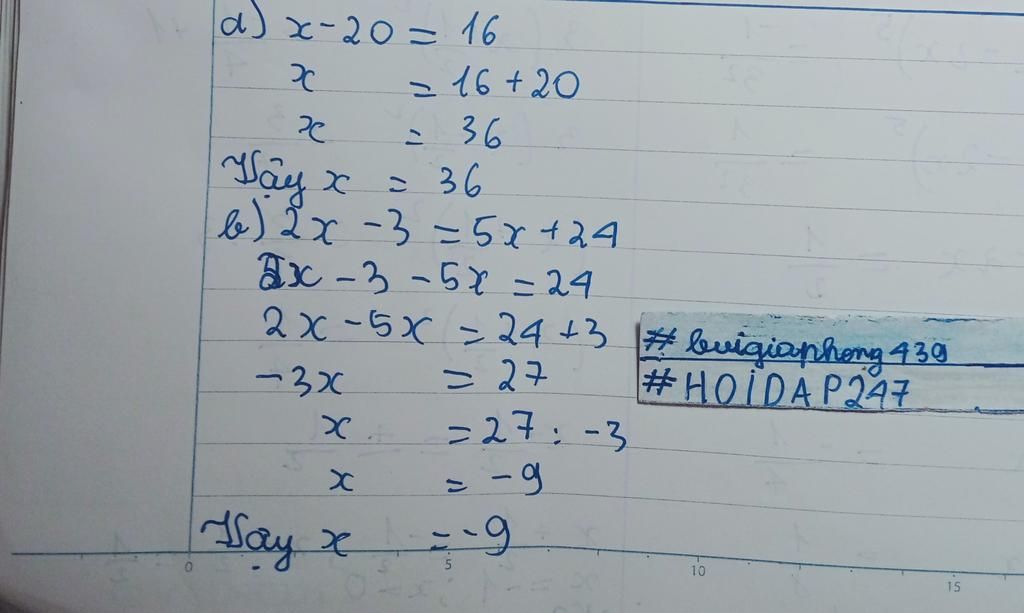 a) x - 20 = 16
x = 16 + 20
x = 36
Vậy x = 36
b) 2x - 3 = 5x + 24
2x - 3 - 5x = 24
2x - 5x = 24 + 3
-3x = 27
x = 27 : -3
x = -9
Vậy x = -9
# buigiaphong439
# HOIDAP247
0 5 10 15